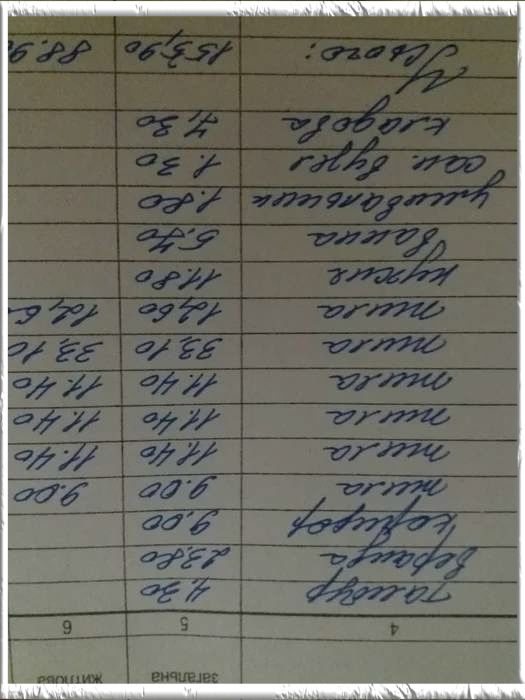 загальна житлова
4 5 6
тамбур 4,30
веранда 23,80
коридор 9,00
жила 9.00 9.00
жила 11,40 11.40
жила 11.40 11.40
жила 11.40 11.40
жила 33,10 33,10
жила 12,60 12,6
кухня 11.80
ванна 5.70
умивальник 1.80
сан. вузел 1.30
кладова 7,30
Усього: 153,90 88.9